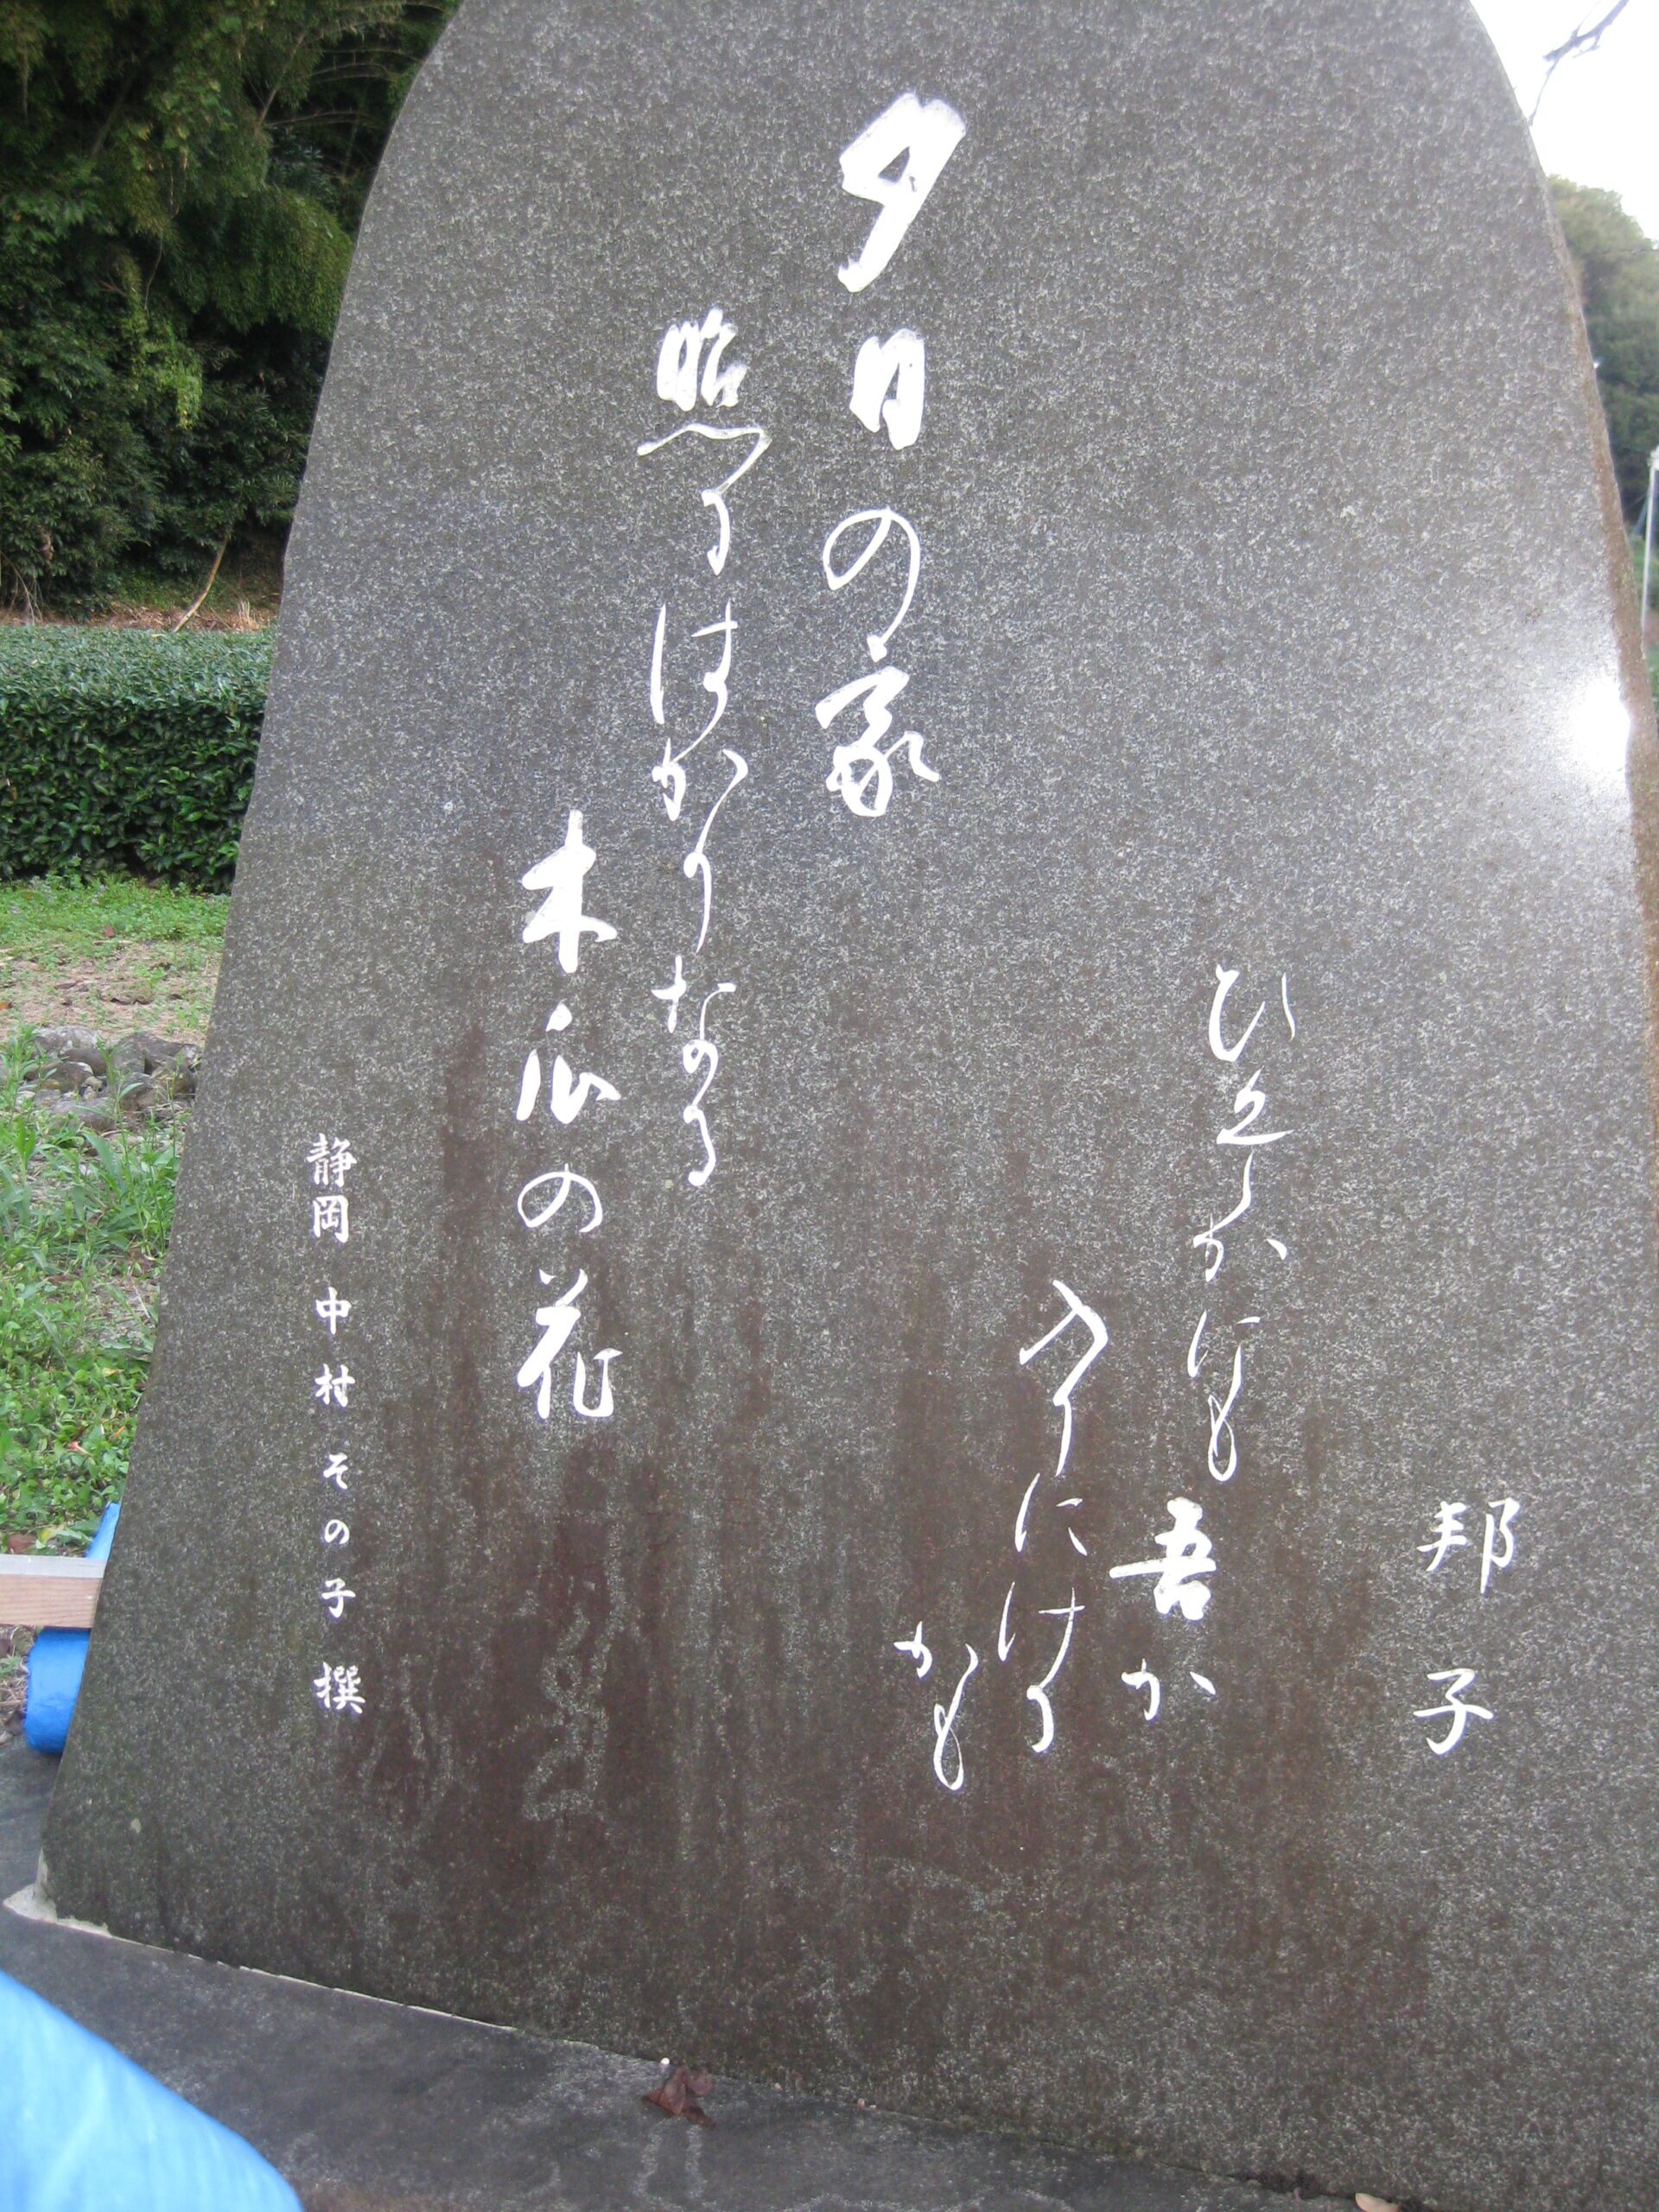 夕日の家
照るはかりなる
木瓜の花
かにも
吾か
にける
かも
邦子
静岡 中村その子 撰